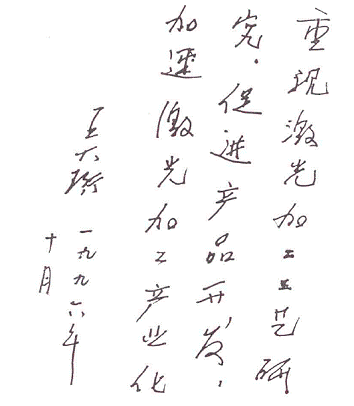 重视激光加工工艺研
究，促进产品开发，
加速激光加工产业化
王大珩
一九九六年
十月